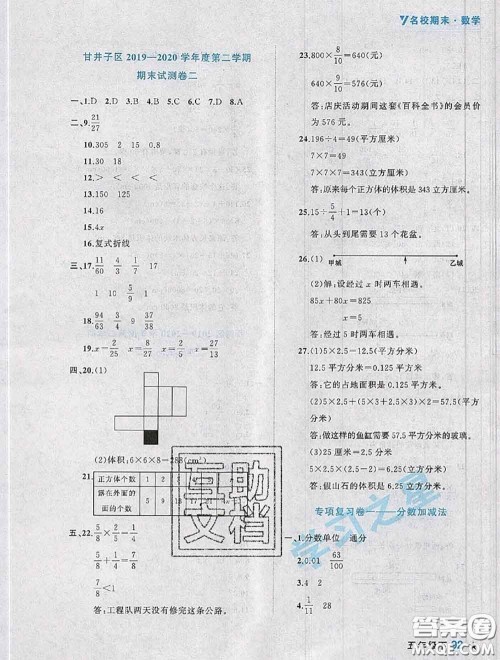 名校期末·数学
甘井子区 2019—2020 学年度第二学期
期末试测卷二
一、1.D 2.D 3.A 4.B 5.C 6.D 7.D 8.A
二、9. 21/27
10.305 2 15 0.8
11.30 18
12.< < < <
13.150 125
14.165
15.4x
16.复式折线
三、17. 11/60 4/3 1/7 1
1 10/9 9/10 0
18. 94/63 3/4 9/37 38/17
19.x=2/25 x=8/27 x=2/13
四、20.(1)
(2)体积:6×6×8=288(cm³)
21. 正方体个数 1 2 3 4
露在外面的面的个数 5 9
五、22. 5/8×2/5=1/4
5/8+1/4=7/8
7/8<1
答:工程队两天没有修完这条公路。
23.800×8/10=640(元)
640×9/10=576(元)
答:店庆活动期间这套《百科全书》的会员价为 576 元。
24.196÷4=49(平方厘米)
7×7=49(平方厘米)
7×7×7=343(立方厘米)
答:原来每个正方体的体积是 343 立方厘米。
25.15÷5/4+1=13(个)
答:从头到尾需要 13 个花盆。
26.(1) 甲城 乙城
(2)解:设经过 x 时两车相遇。
85x+80x=825
x=5
答:经过 5 时两车相遇。
27.(1)5×2.5=12.5(平方分米)
12.5平方分米=0.125 平方米
答:它的占地面积是 0.125 平方米。
(2)5×2.5+(5×3+2.5×3)×2=57.5(平方分米)
答:做这样的鱼缸需要 57.5 平方分米的玻璃。
(3)25 厘米=2.5 分米
5×2.5×(2.5-2)=6.25(立方分米)
答:假山石的体积是 6.25 立方分米。
专项复习卷一——分数加减法
一、1.分数单位 通分
2.0.01 63/100
3. 1/4
4. 1/11 28
互助文档
学习之星
答案圈